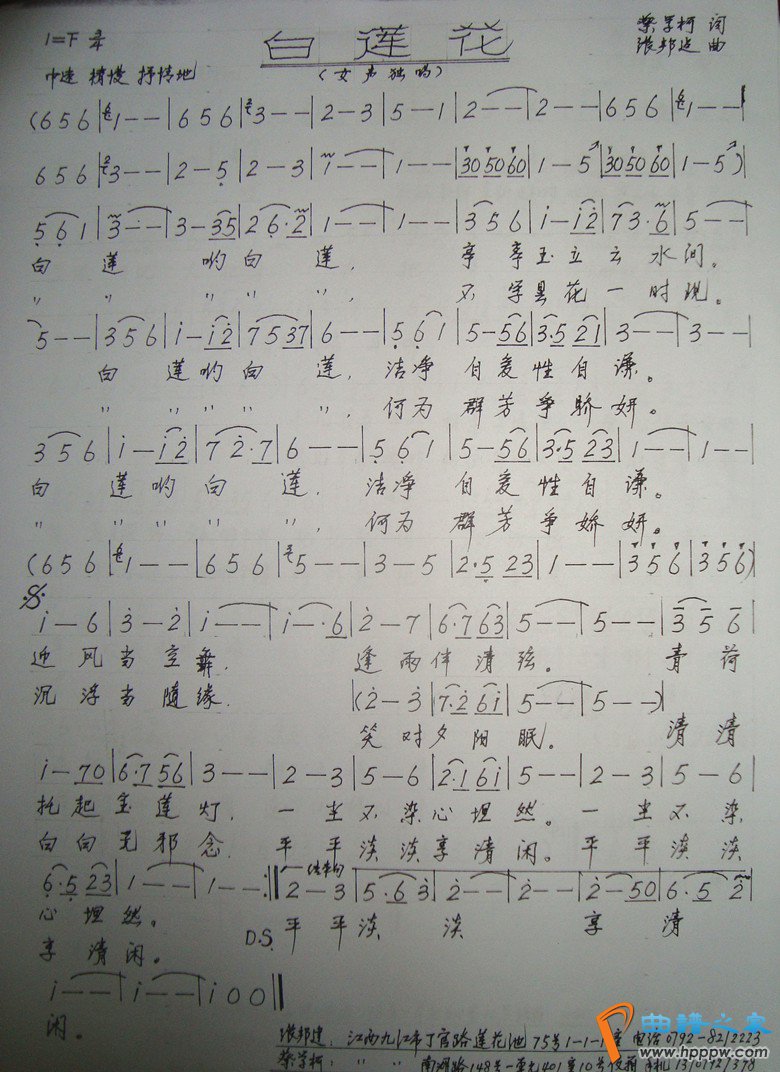 白莲花
1=F 3/4
柴学柯 词
张邦建 曲
中速 稍慢 抒情地
(女声独唱)
(6 5 6 | 1 - - | 6 5 6 | 3 - - | 2 - 3 | 5 - 1 | 2 - - | 2 - - | 6 5 6 | 1 - -
6 5 6 | 3 - - | 2 - 5 | 2 - 3 | 1 - - | 1 - - | 30 50 60 | 1 - 5 | 30 50 60 | 1 - 5)
5 6 1 | 3 - - | 3 - 35 | 2 6·2 | 1 - - | 1 - - | 3 5 6 | i - i2 | 7 3·6 | 5 - -
白 莲 哟 白 莲, 亭 亭 玉 立 云 水 间。
〃 〃 〃 〃 〃, 不 学 昙 花 一 时 现。
5 - - | 3 5 6 | i - i2 | 75 37 | 6 - - | 5 6 1 | 5 - 56 | 3·5 21 | 3 - - | 3 - -
白 莲 哟 白 莲, 洁 净 自 爱 性 自 谦。
〃 〃 〃 〃 〃, 何 为 群 芳 争 骄 妍。
3 5 6 | i - i2 | 7 2·7 | 6 - - | 5 6 1 | 5 - 56 | 3·5 23 | 1 - - | 1 - -
白 莲 哟 白 莲, 洁 净 自 爱 性 自 谦。
〃 〃 〃 〃 〃, 何 为 群 芳 争 娇 妍。
(6 5 6 | 1 - - | 6 5 6 | 5 - - | 3 - 5 | 2·5 23 | 1 - - | 3 5 6 | 3 5 6)
i - 6 | 3 - 2 | i - - | i - ·6 | 2 - 7 | 6·7 63 | 5 - - | 5 - - | 3 5 6
迎 风 当 空 舞, 逢 雨 伴 清 弦。 青 荷
沉 浮 当 随 缘, (2 - 3 | 7·2 6i | 5 - - | 5 - -)
笑 对 夕 阳 眠。 清 清
i - 70 | 6·7 56 | 3 - - | 2 - 3 | 5 - 6 | 2·1 6i | 5 - - | 2 - 3 | 5 - 6
托 起 宝 莲 灯, 一 尘 不 染 心 坦 然。 一 尘 不 染
白 白 无 邪 念, 平 平 淡 淡 享 清 闲。 平 平 淡 淡
6·5 23 | 1 - - | 1 - - :‖ 结束句 2 - 3 | 5·6 3 | 2 - - | 2 - - | 2 - 50 | 6·5 2
心 坦 然。 D.S. 平 平 淡 淡 享 清
享 清 闲。
i - - | i - - | i 0 0 ‖
闲。
张邦建: 江西九江市丁官路莲花池75号1-1-1室 电话0792-8212223
柴学柯: 〃 〃 南湖路148号一单元401室10号
曲谱之家
www.hppw.com